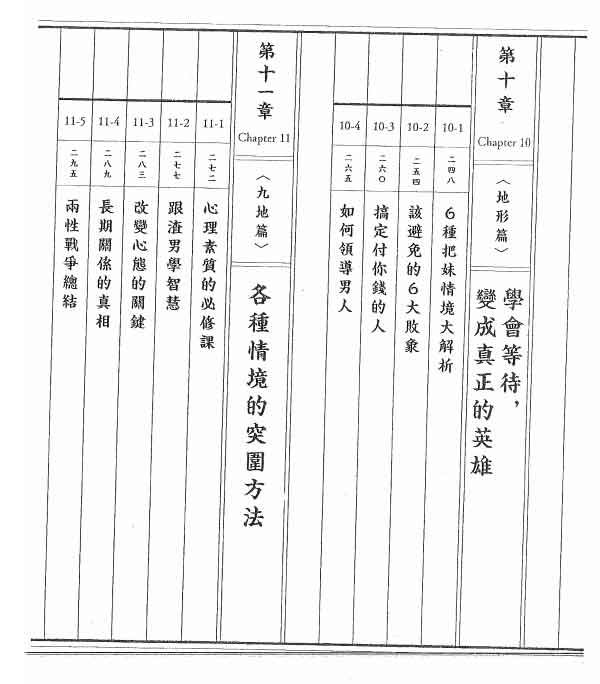 第十章
Chapter 10
〈地形篇〉
學會等待，
變成真正的英雄
10-1
二四八
6種把妹情境大解析
10-2
二五四
該避免的6大敗象
10-3
二六〇
搞定付你錢的人
10-4
二六五
如何領導男人
第十一章
Chapter 11
〈九地篇〉
各種情境的突圍方法
11-1
二七二
心理素質的必修課
11-2
二七七
跟渣男學智慧
11-3
二八三
改變心態的關鍵
11-4
二八九
長期關係的真相
11-5
二九五
兩性戰爭總結